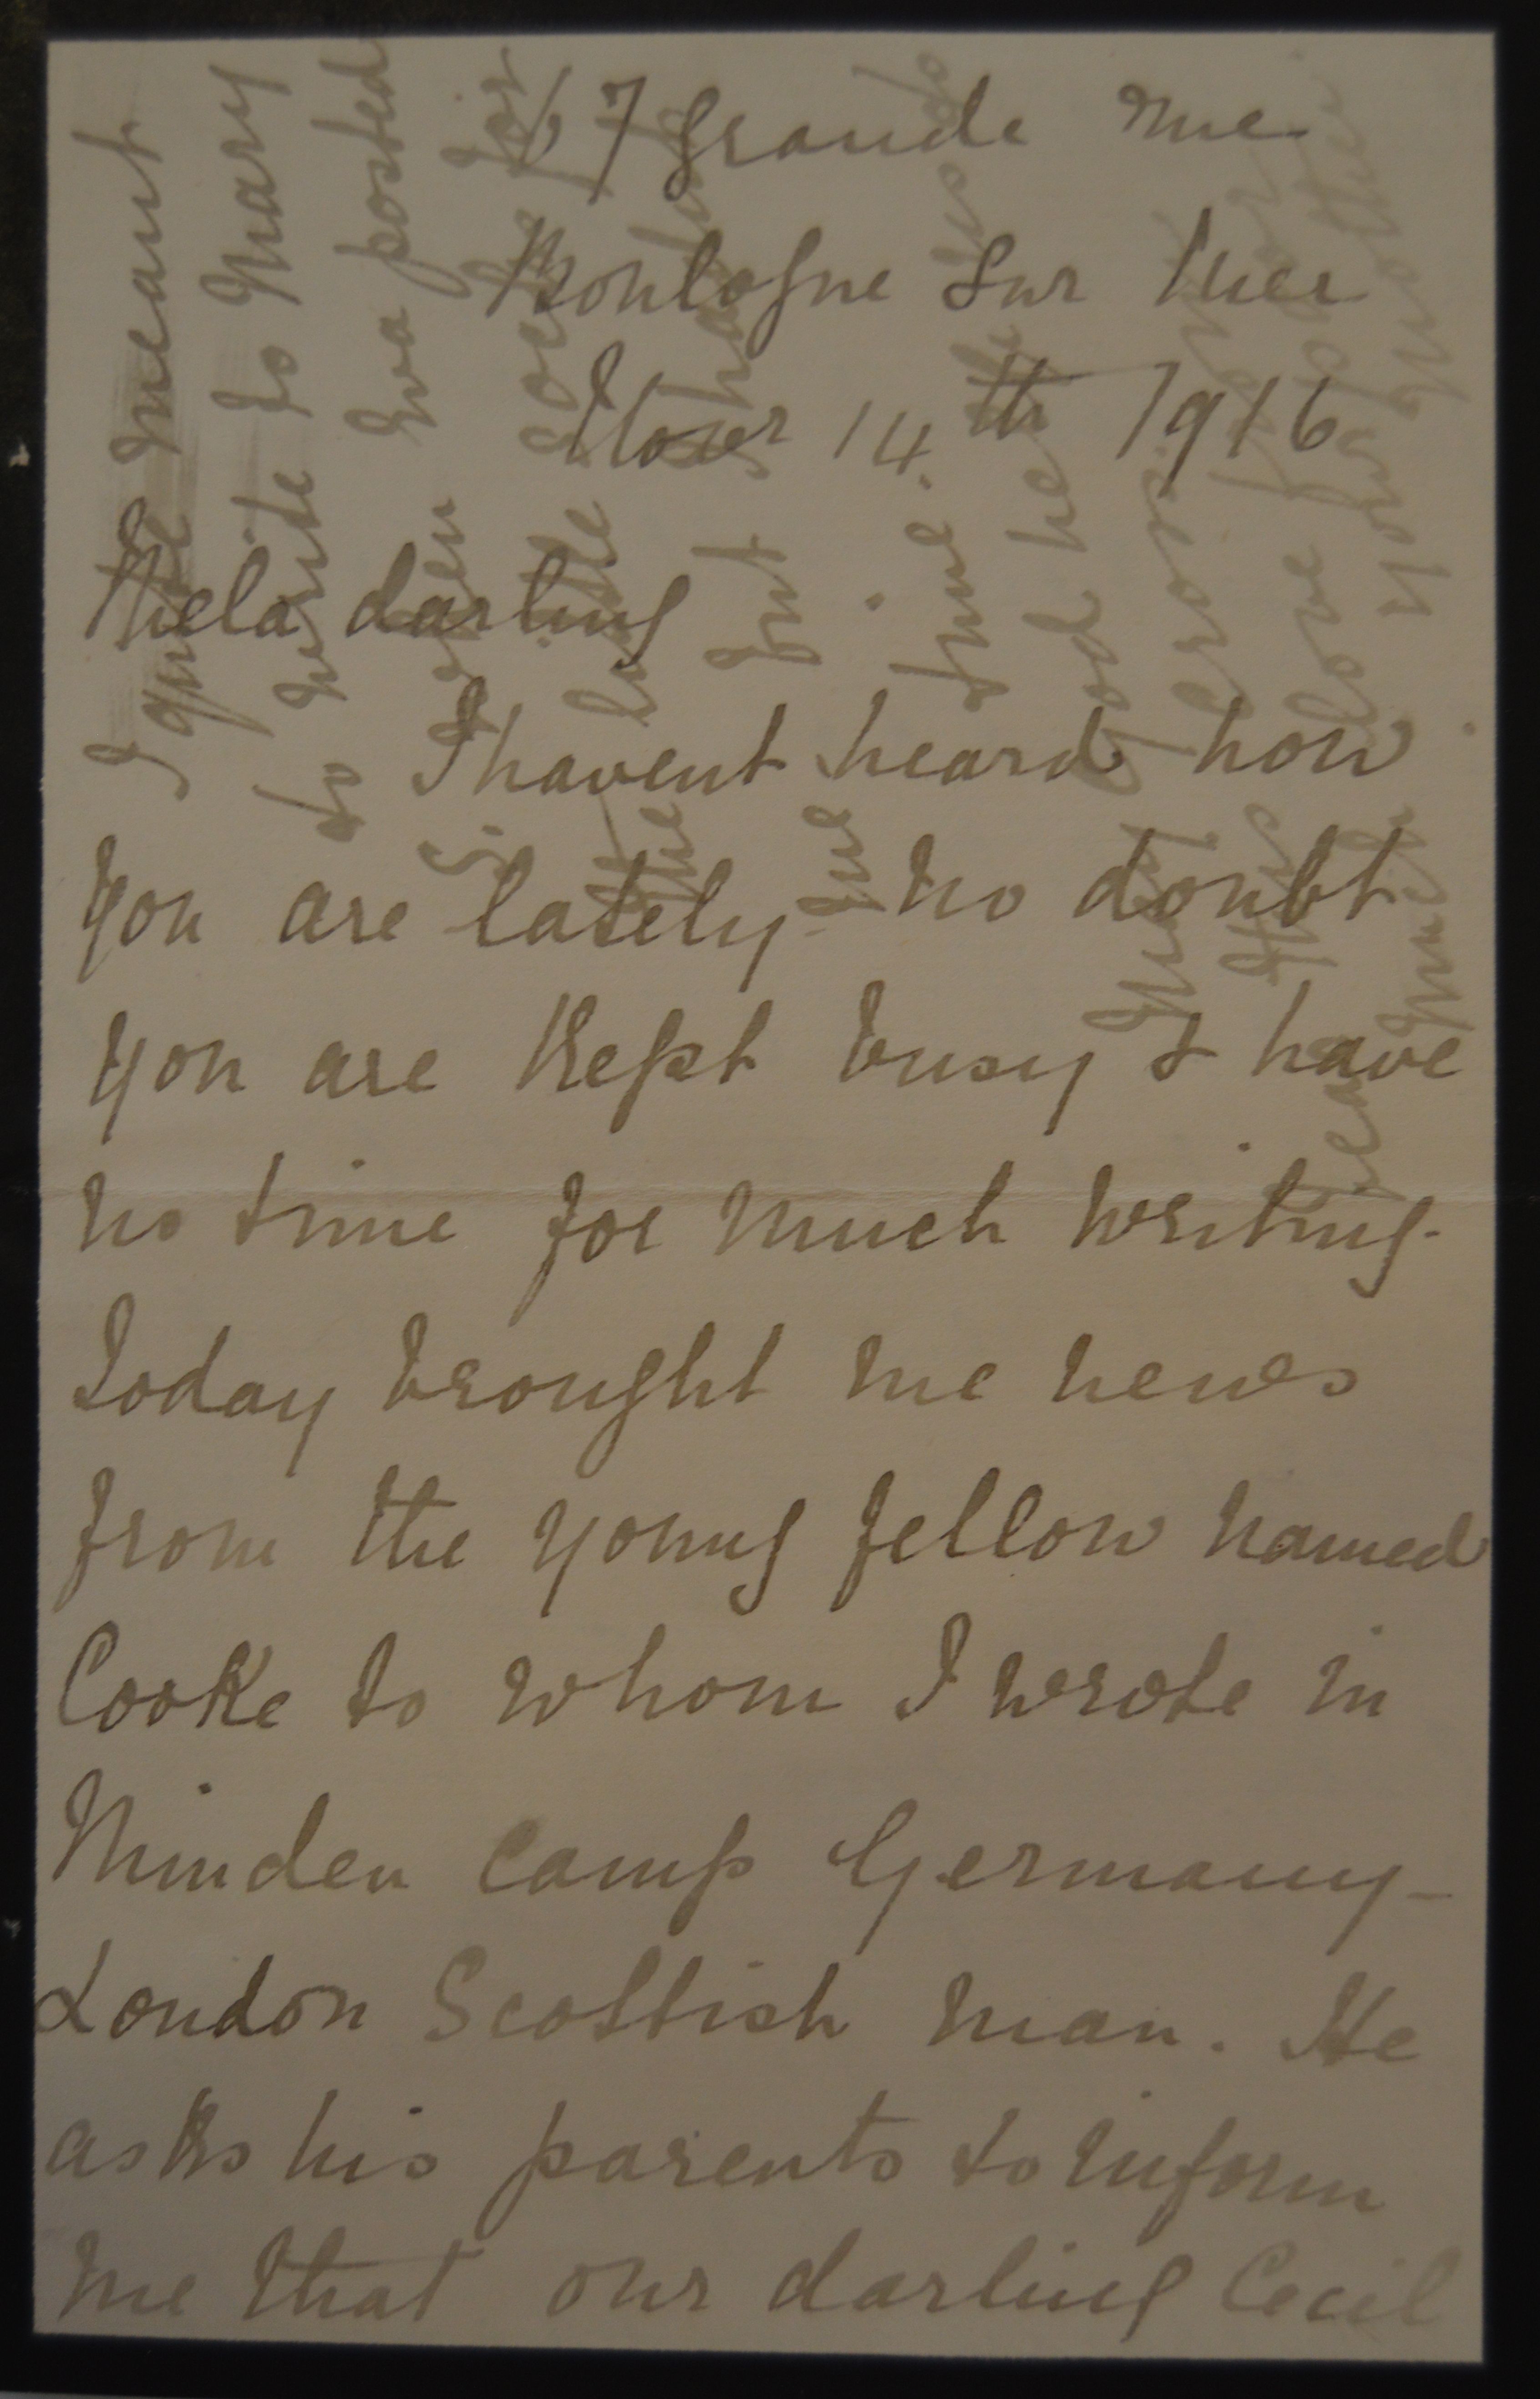 67 Grande rue
Boulogne Sur Mer
14th 1916
darling
I havent heard how
you are lately - no doubt
you are kept busy & have
no time for much writing -
Today brought me news
from the young fellow named
Cooke to whom I wrote in
Minden Camp Germany -
London Scottish man. He
asks his parents to inform
me that our darling Cecil
I quite meant
to write to Mary
Eva posted
little
but I
time.
God he
much love from
your Mother